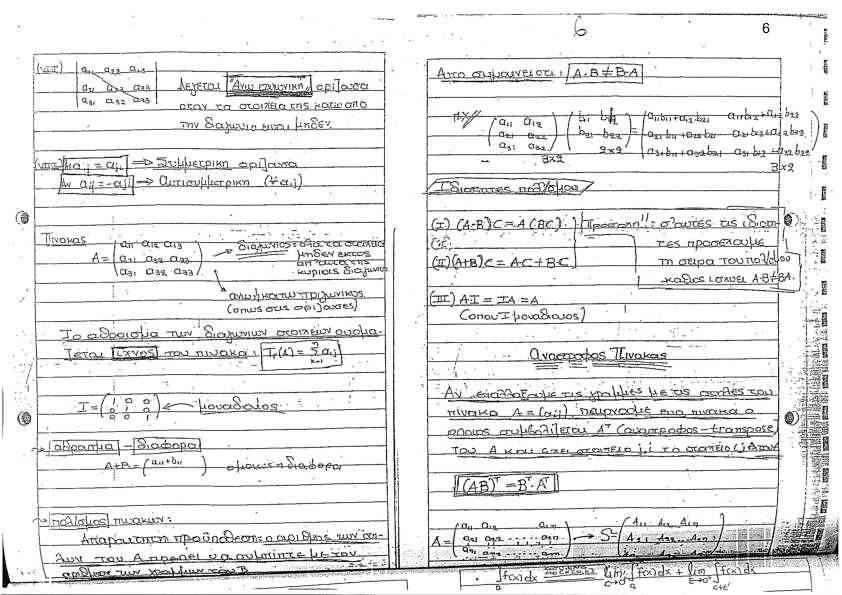 6
6
(VII) | a₁₁ a₂₂ a₁₃ |
| a₂₁ a₂₂ a₂₃ | Λέγεται "Άνω τριγωνική" ορίζουσα
| a₃₁ a₃₂ a₃₃ | όταν τα στοιχεία της κάτω από
την διαγώνιο είναι μηδέν.
(VIII) Αν aᵢⱼ = aⱼᵢ ⇒ Συμμετρική ορίζουσα
Αν aᵢⱼ = -aⱼᵢ ⇒ Αντισυμμετρική (∀ aᵢⱼ)
Πίνακας
A = ( a₁₁ a₁₂ a₁₃ → διαγώνιος: όλα τα στοιχεία
a₂₁ a₂₂ a₂₃ μηδέν εκτός
a₃₁ a₃₂ a₃₃ ) απ' αυτά της
κυρίας διαγωνίου
άνω ή κάτω τριγωνικός
(όπως στις ορίζουσες)
Το άθροισμα των διαγωνίων στοιχείων ονομά-
ζεται ίχνος του πίνακα: Tr(A) = Σ aᵢⱼ
I = ( 1 0 0
0 1 0 ← μοναδιαίος
0 0 1 )
άθροισμα – διαφορά
A+B = ( a₁₁+b₁₁ ) ομοίως η διαφορά
πολ/σμος πινάκων:
Απαραίτητη προϋπόθεση: ο αριθμός των στη-
λών του Α πρέπει να συμπίπτει με τον
αριθμό των γραμμών του Β
Αυτό σημαίνει ότι: A·B ≠ B·A
π.χ. ( a₁₁ a₁₂ ) ( b₁₁ b₁₂ ) = ( a₁₁b₁₁+a₁₂b₂₁ a₁₁b₁₂+a₁₂b₂₂ )
( a₂₁ a₂₂ ) ( b₂₁ b₂₂ ) ( a₂₁b₁₁+a₂₂b₂₁ a₂₁b₁₂+a₂₂b₂₂ )
( a₃₁ a₃₂ ) 2×2 ( a₃₁b₁₁+a₃₂b₂₁ a₃₁b₁₂+a₃₂b₂₂ )
3×2 3×2
Ιδιότητες πολ/σμού
(I) (A·B)C = A(BC) Προσοχή!!: σ' αυτές τις ιδιότη-
τες προσέχουμε
(II) (A+B)C = A·C + B·C τη σειρά του πολ/σμού
καθώς ισχύει A·B≠BA.
(III) AI = IA = A
(όπου I μοναδιαίος)
Ανάστροφος Πίνακας
Αν εναλλάξουμε τις γραμμές με τις στήλες του
πίνακα A = (aᵢⱼ) παίρνουμε ένα πίνακα ο
οποίος συμβολίζεται Aᵀ (ανάστροφος - transpose)
του Α και έχει στοιχείο j,i το στοιχείο i,j
(AB)ᵀ = Bᵀ·Aᵀ
A = ( a₁₁ a₁₂ ... a₁ₙ ) → S = ( A₁₁ A₁₂ ... Aₙ₁ )
( a₂₁ a₂₂ ... a₂ₙ ) ( A₁₂ A₂₂ ... Aₙ₂ )
∫f(x)dx lim ∫f(x)dx + lim ∫f(x)dx